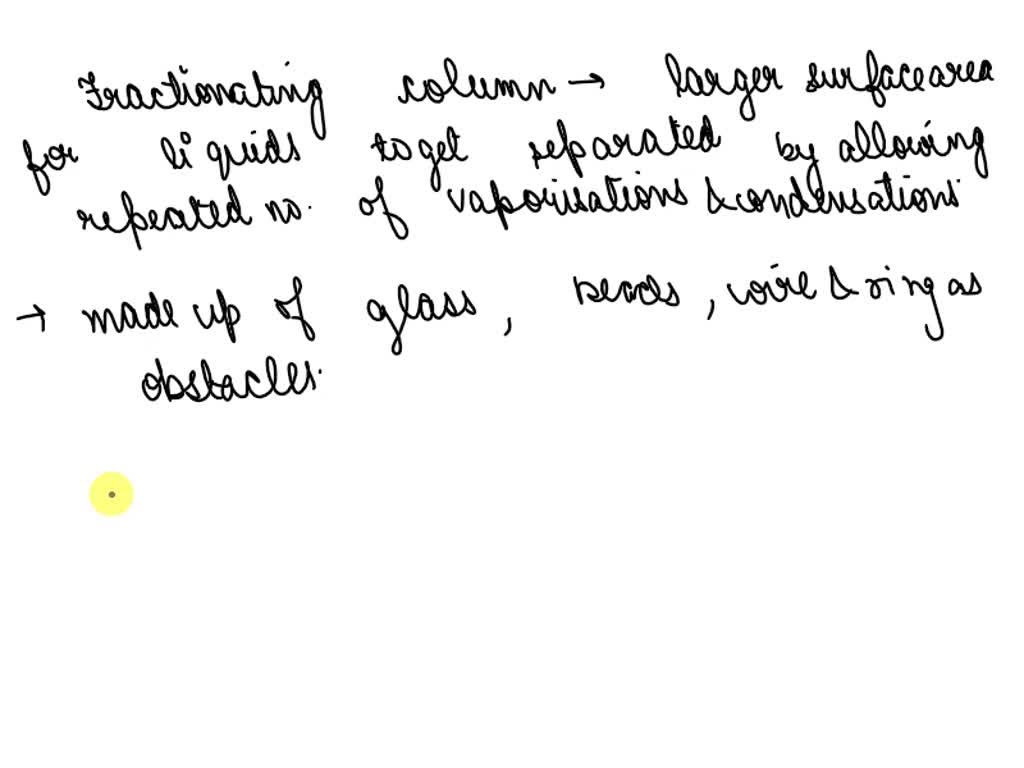 Fractionating column → larger surface area
for liquids to get separated by allowing
repeated no. of vaporisations & condensations.
→ made up of glass, beads, wire & ring as
obstacles.